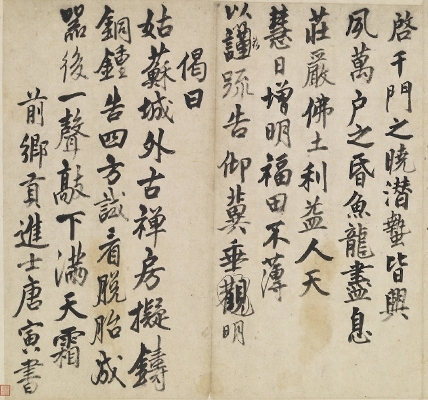 啓千門之曉潛蟄皆興
夙萬户之昏魚龍盡息
莊嚴佛土利益人天
慧日增明福田不薄
以謹疏告仰冀垂觀明
偈曰
姑蘇城外古禪房擬鑄
銅鍾告四方試看脫胎成
器後一聲敲下滿天霜
前鄉貢進士唐寅書